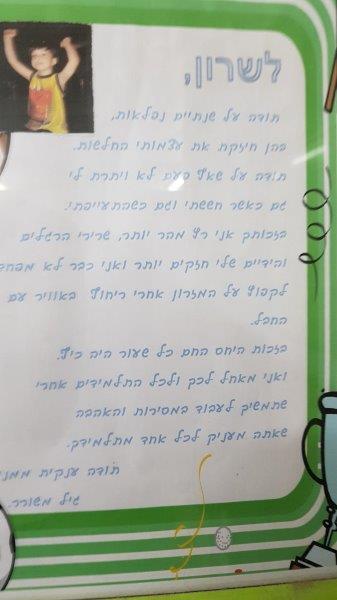 לשרון,
תודה על שנתיים נפלאות,
בהן חיזקת את עצמותי החלשות.
תודה על שאף פעם לא ויתרת לי
גם כאשר חששתי וגם כשהתעייפתי.
בזכותך אני רץ מהר יותר, שרירי הרגליים
והידיים שלי חזקים יותר ואני כבר לא מפחד
לקפוץ על המזרון אחרי ריחוף באוויר עם
החבל.
בזכות היחס החם כל שעור היה כיף.
ואני מאחל לכך ולכל התלמידים אחרי
שתמשיך לעבוד במסירות והאהבה
שאתה מעניק לכל אחד מתלמידך.
תודה ענקית ממני
גיל משורר.